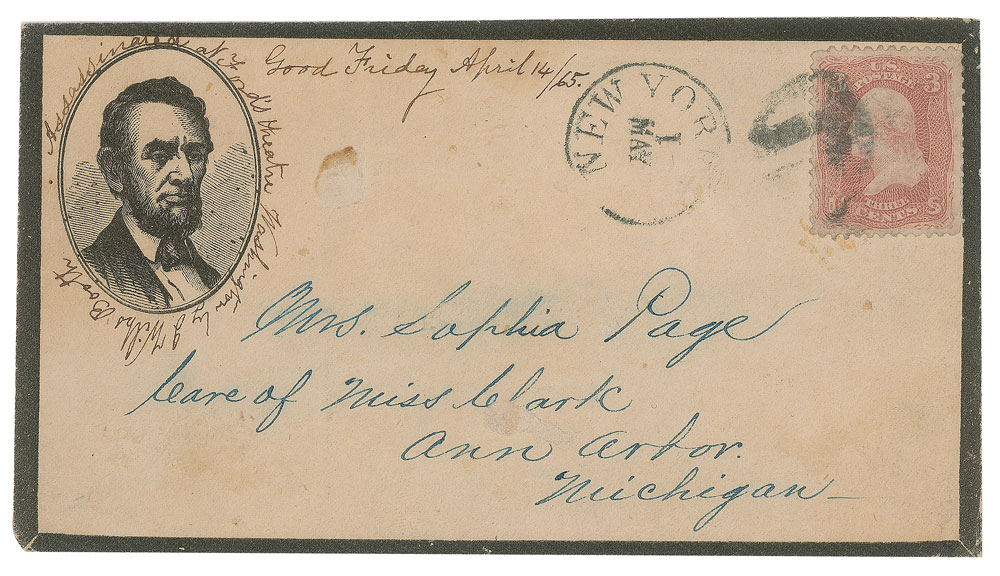 Assassinated at Ford's theatre Washington by J Wilks Booth
Good Friday April 14/65.
NEW YORK
MAY
1
U.S. POSTAGE
3
THREE
CENTS
Mrs. Sophia Page
Care of Miss Clark
Ann Arbor.
Michigan